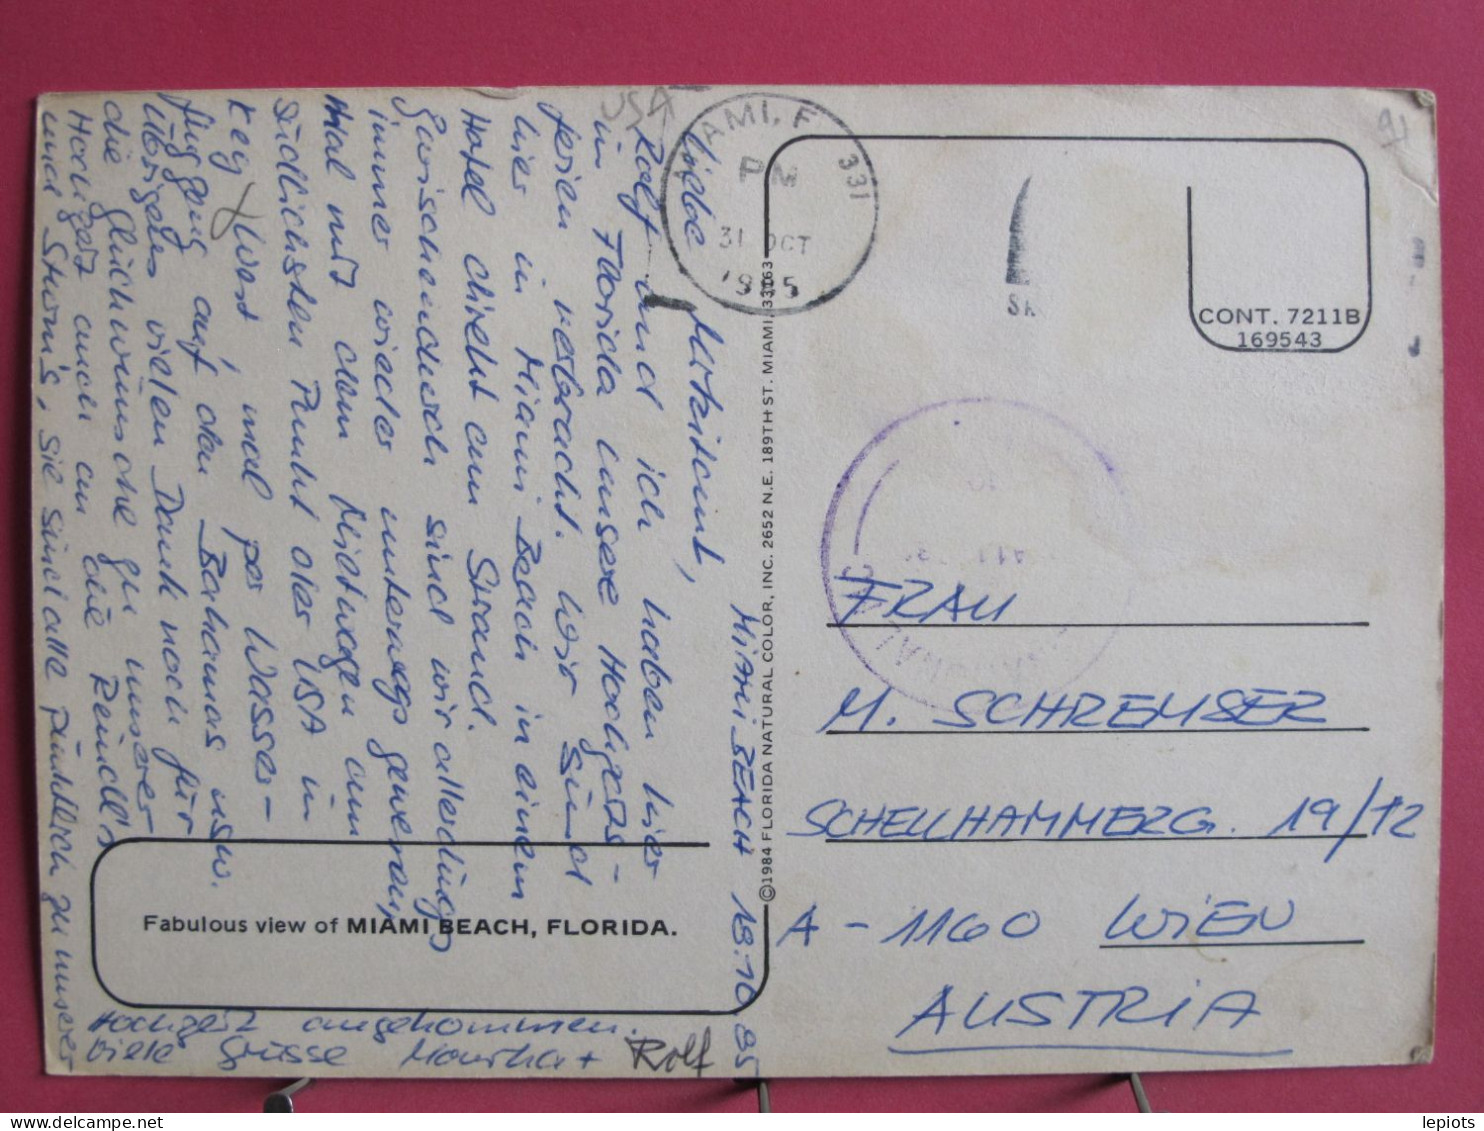 USA
MIAMI, F 331
PM
31 OCT
1985
91
CONT. 7211B
169543
MIAMI BEACH 18.10 85
Liebe
Rolf und ich haben hier
in Florida unsere Hochzeits-
reise verbracht. Wir sind
hier in Miami Beach in einem
Hotel direkt am Strand.
Zwischendurch sind wir allerdings
immer wieder unterwegs gewesen,
mal mit dem Mietwagen am
südlichsten Punkt der USA in
Key West, mal per Wasser-
flugzeug auf den Bahamas usw.
Übrigens vielen Dank noch für
die Glückwünsche zu unserer
Hochzeit auch an die Reindl's
und Sturm's, sie sind alle pünktlich zu unserer
Hochzeit angekommen.
Viele Grüsse Martha + Rolf
©1984 FLORIDA NATURAL COLOR, INC. 2652 N.E. 189TH ST. MIAMI, 33163
Fabulous view of MIAMI BEACH, FLORIDA.
FRAU
M. SCHREMSER
SCHELLHAMMERG. 19/12
A-1160 WIEN
AUSTRIA
lepiots